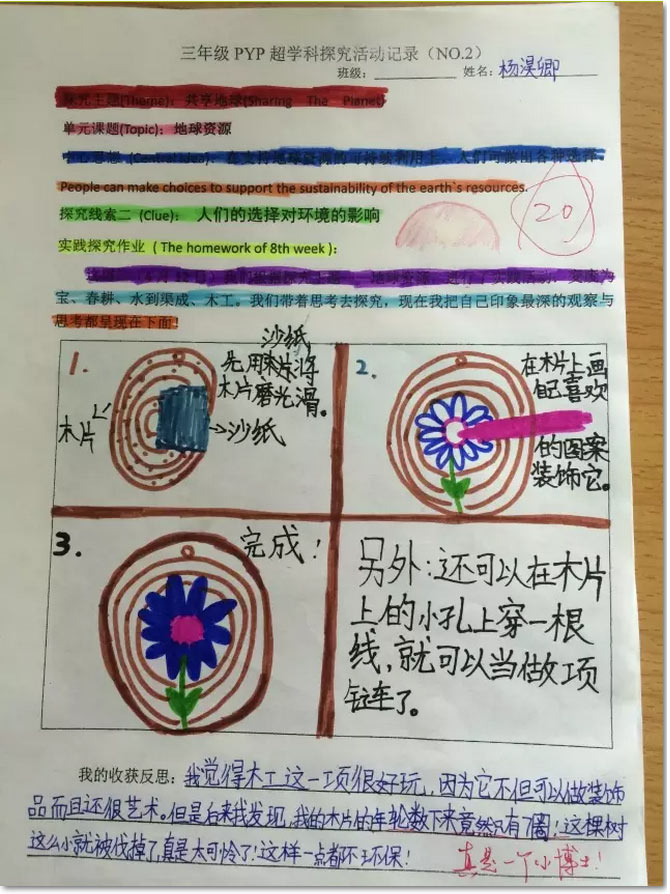 三年级 PYP 超学科探究活动记录（NO.2）
班级：________ 姓名：杨淏卿
探究主题(Theme)：共享地球(Sharing The Planet)
单元课题(Topic)：地球资源
中心思想 (Central idea)：在支持地球资源的可持续利用上，人们可做出各种选择。
People can make choices to support the sustainability of the earth`s resources.
探究线索二 (Clue)： 人们的选择对环境的影响
20
实践探究作业（The homework of 8th week）：
宝、春耕、水到渠成、木工。我们带着思考去探究，现在我把自己印象最深的观察与
思考都呈现在下面！
1.
沙纸
先用 将
木片磨光滑。
木片
沙纸
2.
在木片上画
自己喜欢
的图案
装饰它。
3.
完成！
另外：还可以在木片
上的小孔上穿一根
线，就可以当做项
链了。
我的收获反思：我觉得木工这一项很好玩，因为它不但可以做装饰
品而且还很艺术。但是后来我发现，我的木片的年轮数下来竟然只有7圈！这棵树
这么小就被伐掉了，真是太可怜了！这样一点都不环保！
真是一个小博士！